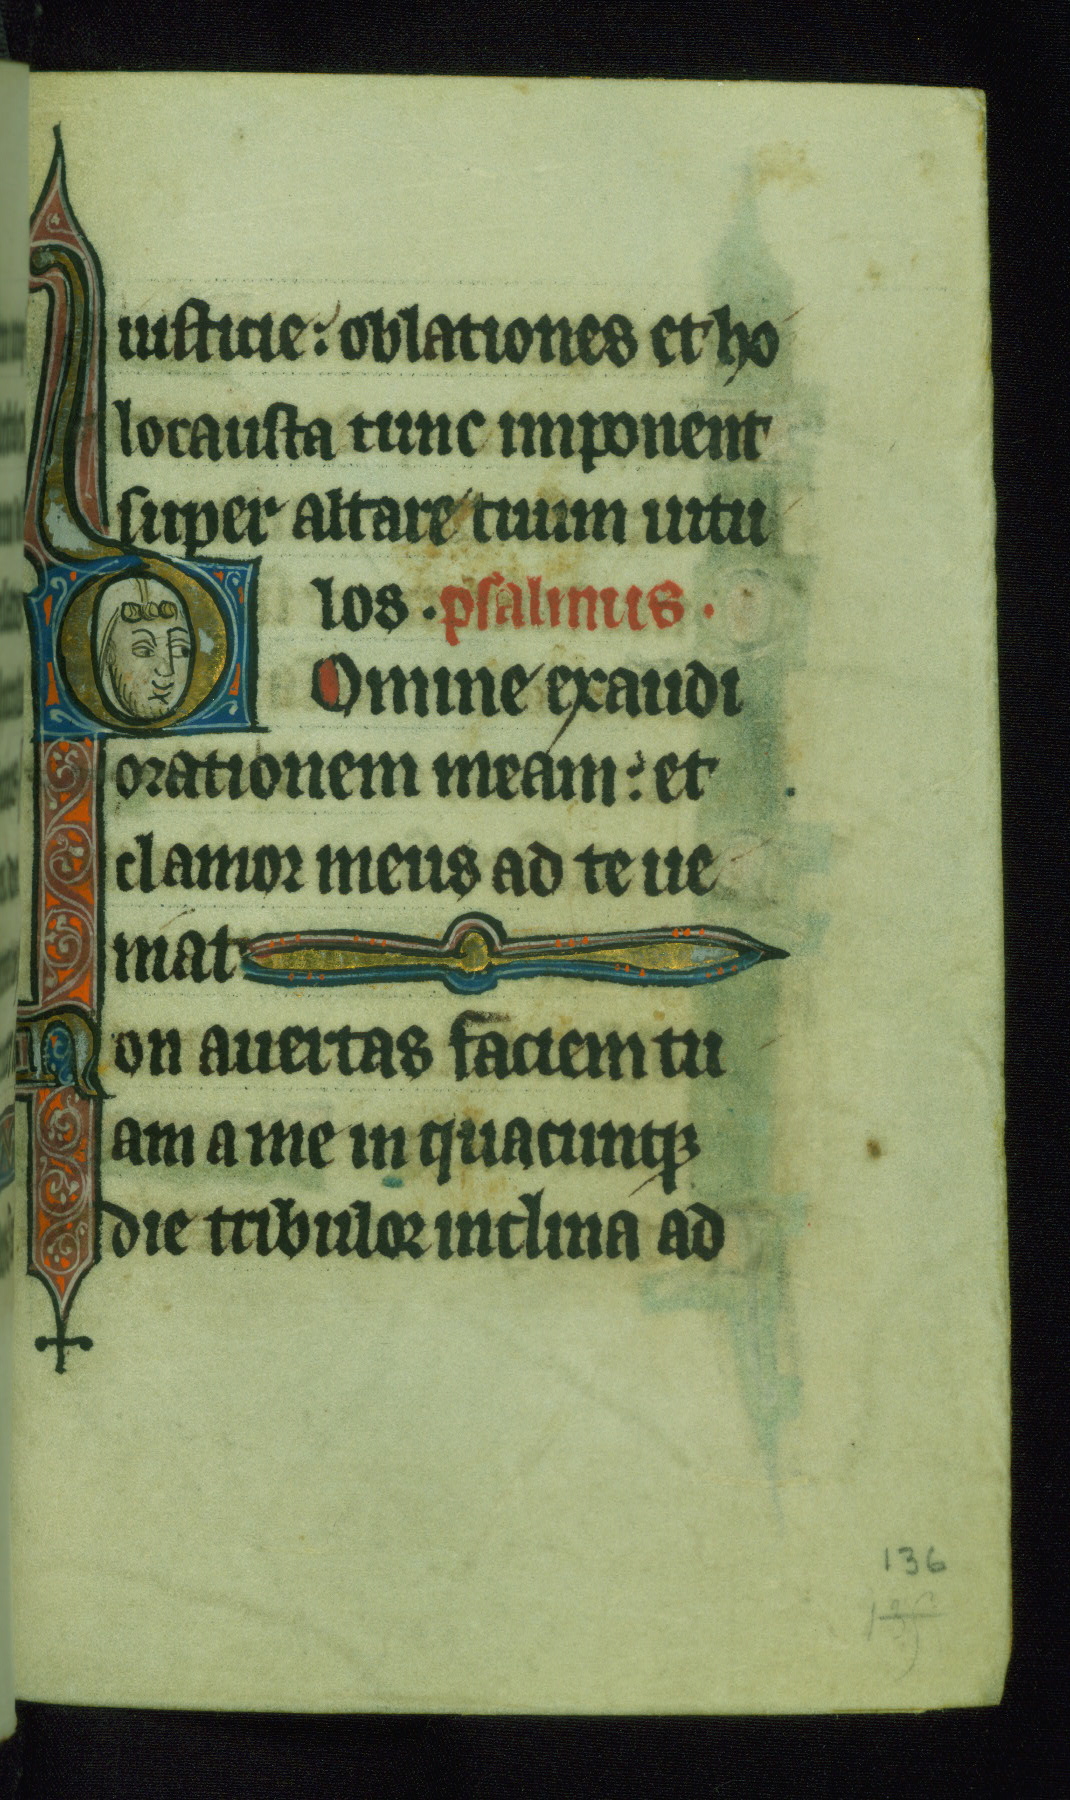 iusticie: oblationes et ho
locausta tunc imponent
super altare tuum uitu
los. psalmus.
Domine exaudi
orationem meam: et
clamor meus ad te ue
niat
Non auertas faciem tu
am a me in quacunq3
die tribulor inclina ad
136